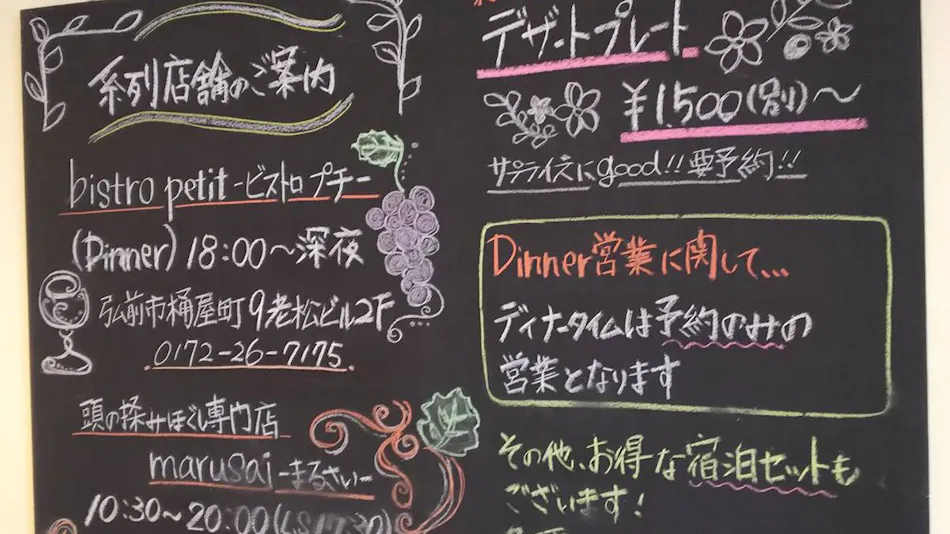 系列店舗のご案内
bistro petit -ビストロ プチ-
(Dinner) 18:00～深夜
弘前市桶屋町9老松ビル2F
0172-26-7175
頭の揉みほぐし専門店
marusai -まるさい-
10:30～20:00
デザートプレート
¥1,500(別)～
サプライズにgood!!要予約!!
Dinner営業に関して...
ディナータイムは予約のみの
営業となります
その他、お得な宿泊セットも
ございます!